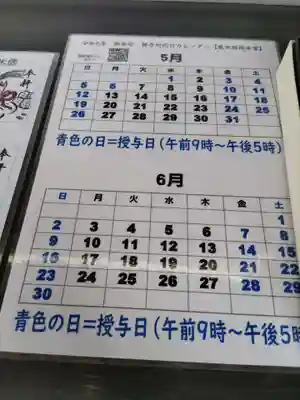 5月
日 月 火 水 木 金 土
1 2 3 4
5 6 7 8 9 10 11
12 13 14 15 16 17 18
19 20 21 22 23 24 25
26 27 28 29 30 31
青色の日=授与日(午前9時~午後5時)
6月
日 月 火 水 木 金 土
1
2 3 4 5 6 7 8
9 10 11 12 13 14 15
16 17 18 19 20 21 22
23 24 25 26 27 28 29
30
青色の日=授与日(午前9時~午後5時